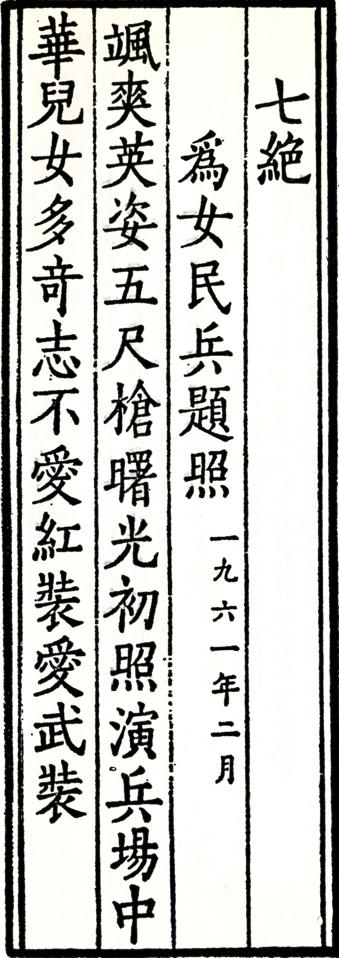 七絕
爲女民兵題照 一九六一年二月
颯爽英姿五尺槍曙光初照演兵場中
華兒女多奇志不愛紅裝愛武裝